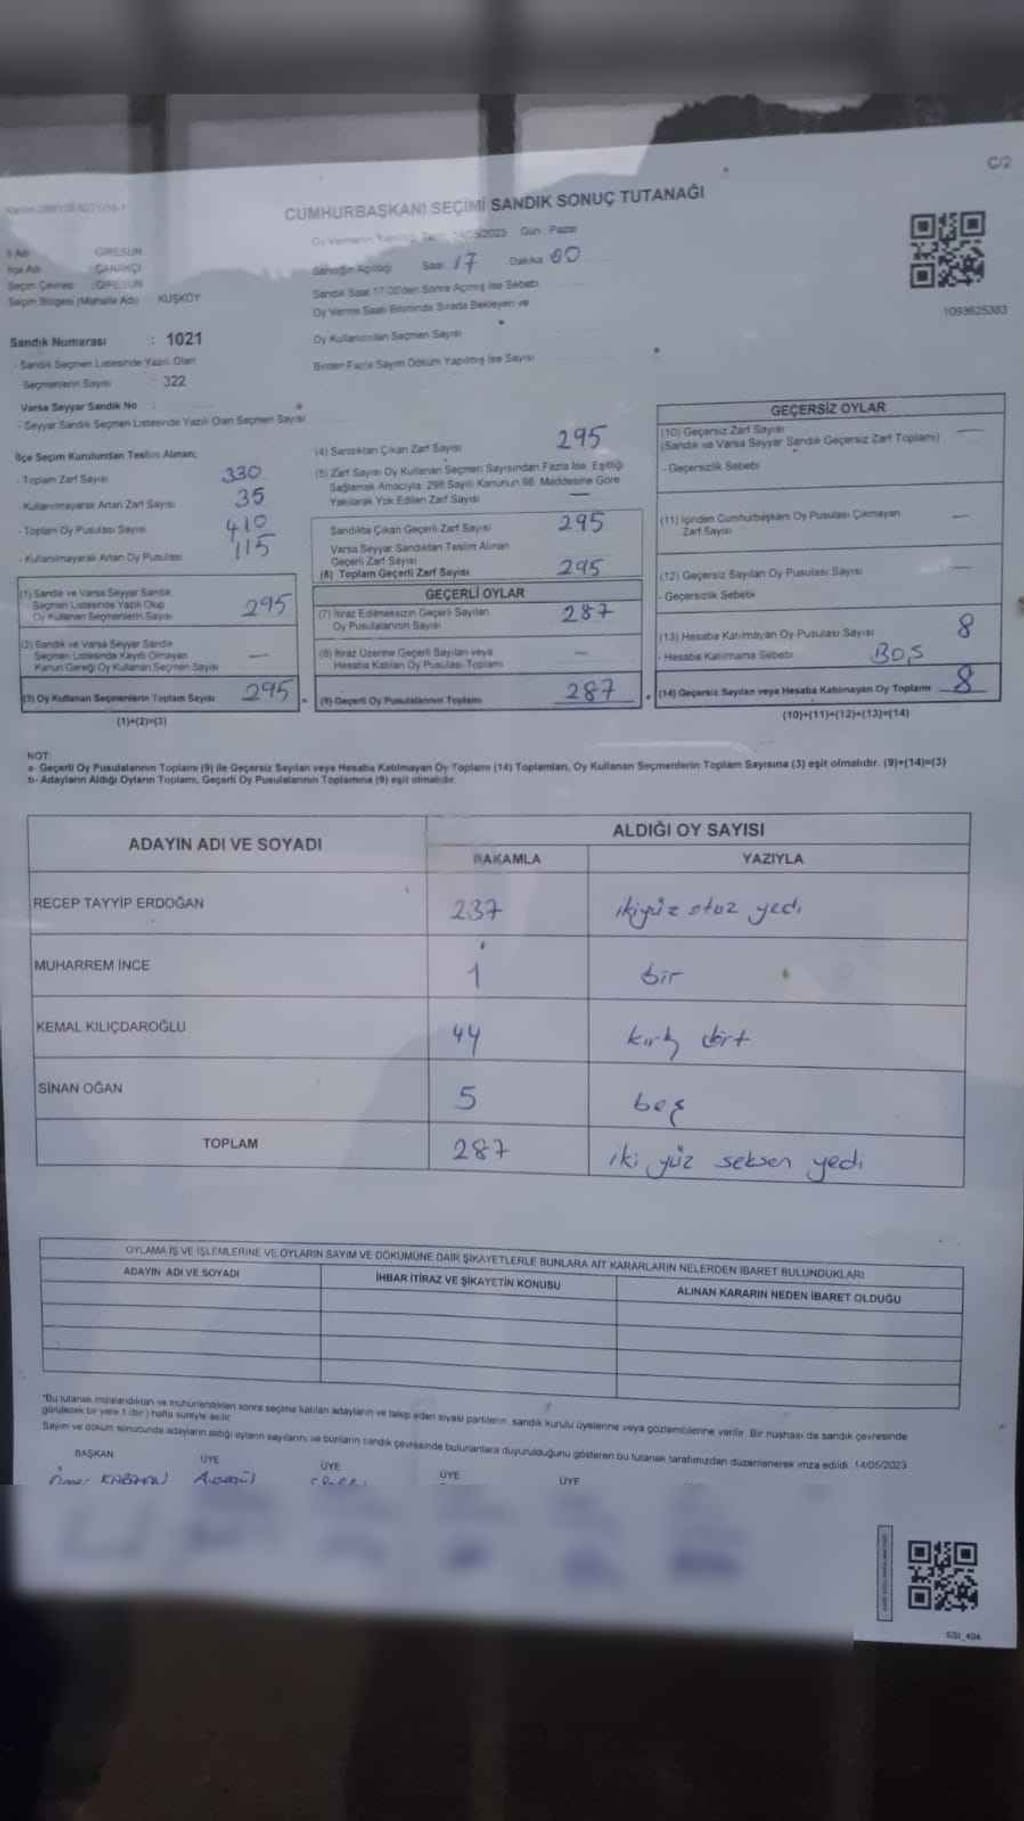 C/2
CUMHURBAŞKANI SEÇİMİ SANDIK SONUÇ TUTANAĞI
Gün : Pazar
İl Adı : GİRESUN
İlçe Adı : ÇANAKÇI
Seçim Çevresi : GİRESUN
Seçim Bölgesi (Mahalle Adı) : KUŞKÖY
Sandığın Açılışı Saat 17 Dakika 00
Sandık Saat 17:00'den Sonra Açılmış İse Sebebi
Oy Verme Saati Bitiminde Sırada Bekleyen ve
Oy Kullandırılan Seçmen Sayısı
Birden Fazla Sayım Döküm Yapılmış İse Sayısı
1093625383
Sandık Numarası : 1021
- Sandık Seçmen Listesinde Yazılı Olan
Seçmenlerin Sayısı : 322
Varsa Seyyar Sandık No
- Seyyar Sandık Seçmen Listesinde Yazılı Olan Seçmen Sayısı
İlçe Seçim Kurulundan Teslim Alınan;
- Toplam Zarf Sayısı 330
- Kullanılmayarak Artan Zarf Sayısı 35
- Toplam Oy Pusulası Sayısı 410
- Kullanılmayarak Artan Oy Pusulası 115
(1) Sandık ve Varsa Seyyar Sandık
Seçmen Listesinde Yazılı Olup
Oy Kullanan Seçmenlerin Sayısı 295
(2) Sandık ve Varsa Seyyar Sandık
Seçmen Listesinde Kayıtlı Olmayan
Kanun Gereği Oy Kullanan Seçmen Sayısı —
(3) Oy Kullanan Seçmenlerin Toplam Sayısı 295
(1)+(2)=(3)
(4) Sandıktan Çıkan Zarf Sayısı 295
(5) Zarf Sayısı Oy Kullanan Seçmen Sayısından Fazla İse, Eşitliği
Sağlamak Amacıyla 298 Sayılı Kanunun 98. Maddesine Göre
Yakılarak Yok Edilen Zarf Sayısı —
Sandıkta Çıkan Geçerli Zarf Sayısı 295
Varsa Seyyar Sandıktan Teslim Alınan
Geçerli Zarf Sayısı
(6) Toplam Geçerli Zarf Sayısı 295
GEÇERLİ OYLAR
(7) İtiraz Edilmeksizin Geçerli Sayılan
Oy Pusulalarının Sayısı 287
(8) İtiraz Üzerine Geçerli Sayılan veya
Hesaba Katılan Oy Pusulası Toplamı —
(9) Geçerli Oy Pusulalarının Toplamı 287
GEÇERSİZ OYLAR
(10) Geçersiz Zarf Sayısı —
(Sandık ve Varsa Seyyar Sandık Geçersiz Zarf Toplamı)
- Geçersizlik Sebebi
(11) İçinden Cumhurbaşkanı Oy Pusulası Çıkmayan
Zarf Sayısı —
(12) Geçersiz Sayılan Oy Pusulası Sayısı —
- Geçersizlik Sebebi
(13) Hesaba Katılmayan Oy Pusulası Sayısı 8
- Hesaba Katılmama Sebebi BOŞ
(14) Geçersiz Sayılan veya Hesaba Katılmayan Oy Toplamı 8
(10)+(11)+(12)+(13)=(14)
NOT:
a- Geçerli Oy Pusulalarının Toplamı (9) ile Geçersiz Sayılan veya Hesaba Katılmayan Oy Toplamı (14) Toplamları, Oy Kullanan Seçmenlerin Toplam Sayısına (3) eşit olmalıdır. (9)+(14)=(3)
b- Adayların Aldığı Oyların Toplamı, Geçerli Oy Pusulalarının Toplamına (9) eşit olmalıdır.
ADAYIN ADI VE SOYADI
ALDIĞI OY SAYISI
RAKAMLA YAZIYLA
RECEP TAYYİP ERDOĞAN 237 ikiyüz otuz yedi
MUHARREM İNCE 1 bir
KEMAL KILIÇDAROĞLU 44 kırk dört
SİNAN OĞAN 5 beş
TOPLAM 287 iki yüz seksen yedi
OYLAMA İŞ VE İŞLEMLERİNE VE OYLARIN SAYIM VE DÖKÜMÜNE DAİR ŞİKAYETLERLE BUNLARA AİT KARARLARIN NELERDEN İBARET BULUNDUKLARI
ADAYIN ADI VE SOYADI İHBAR İTİRAZ VE ŞİKAYETİN KONUSU ALINAN KARARIN NEDEN İBARET OLDUĞU
*Bu tutanak imzalandıktan ve mühürlendikten sonra seçime katılan adayların ve takip eden siyasi partilerin, sandık kurulu üyelerine veya gözlemcilerine verilir. Bir nüshası da sandık çevresinde
görülecek bir yere 1 (bir) hafta süreyle asılır.
Sayım ve döküm sonucunda adayların aldığı oyların sayılarını ve bunların sandık çevresinde bulunanlara duyurulduğunu gösteren bu tutanak tarafımızdan düzenlenerek imza edildi. 14/05/2023
BAŞKAN ÜYE ÜYE ÜYE ÜYE